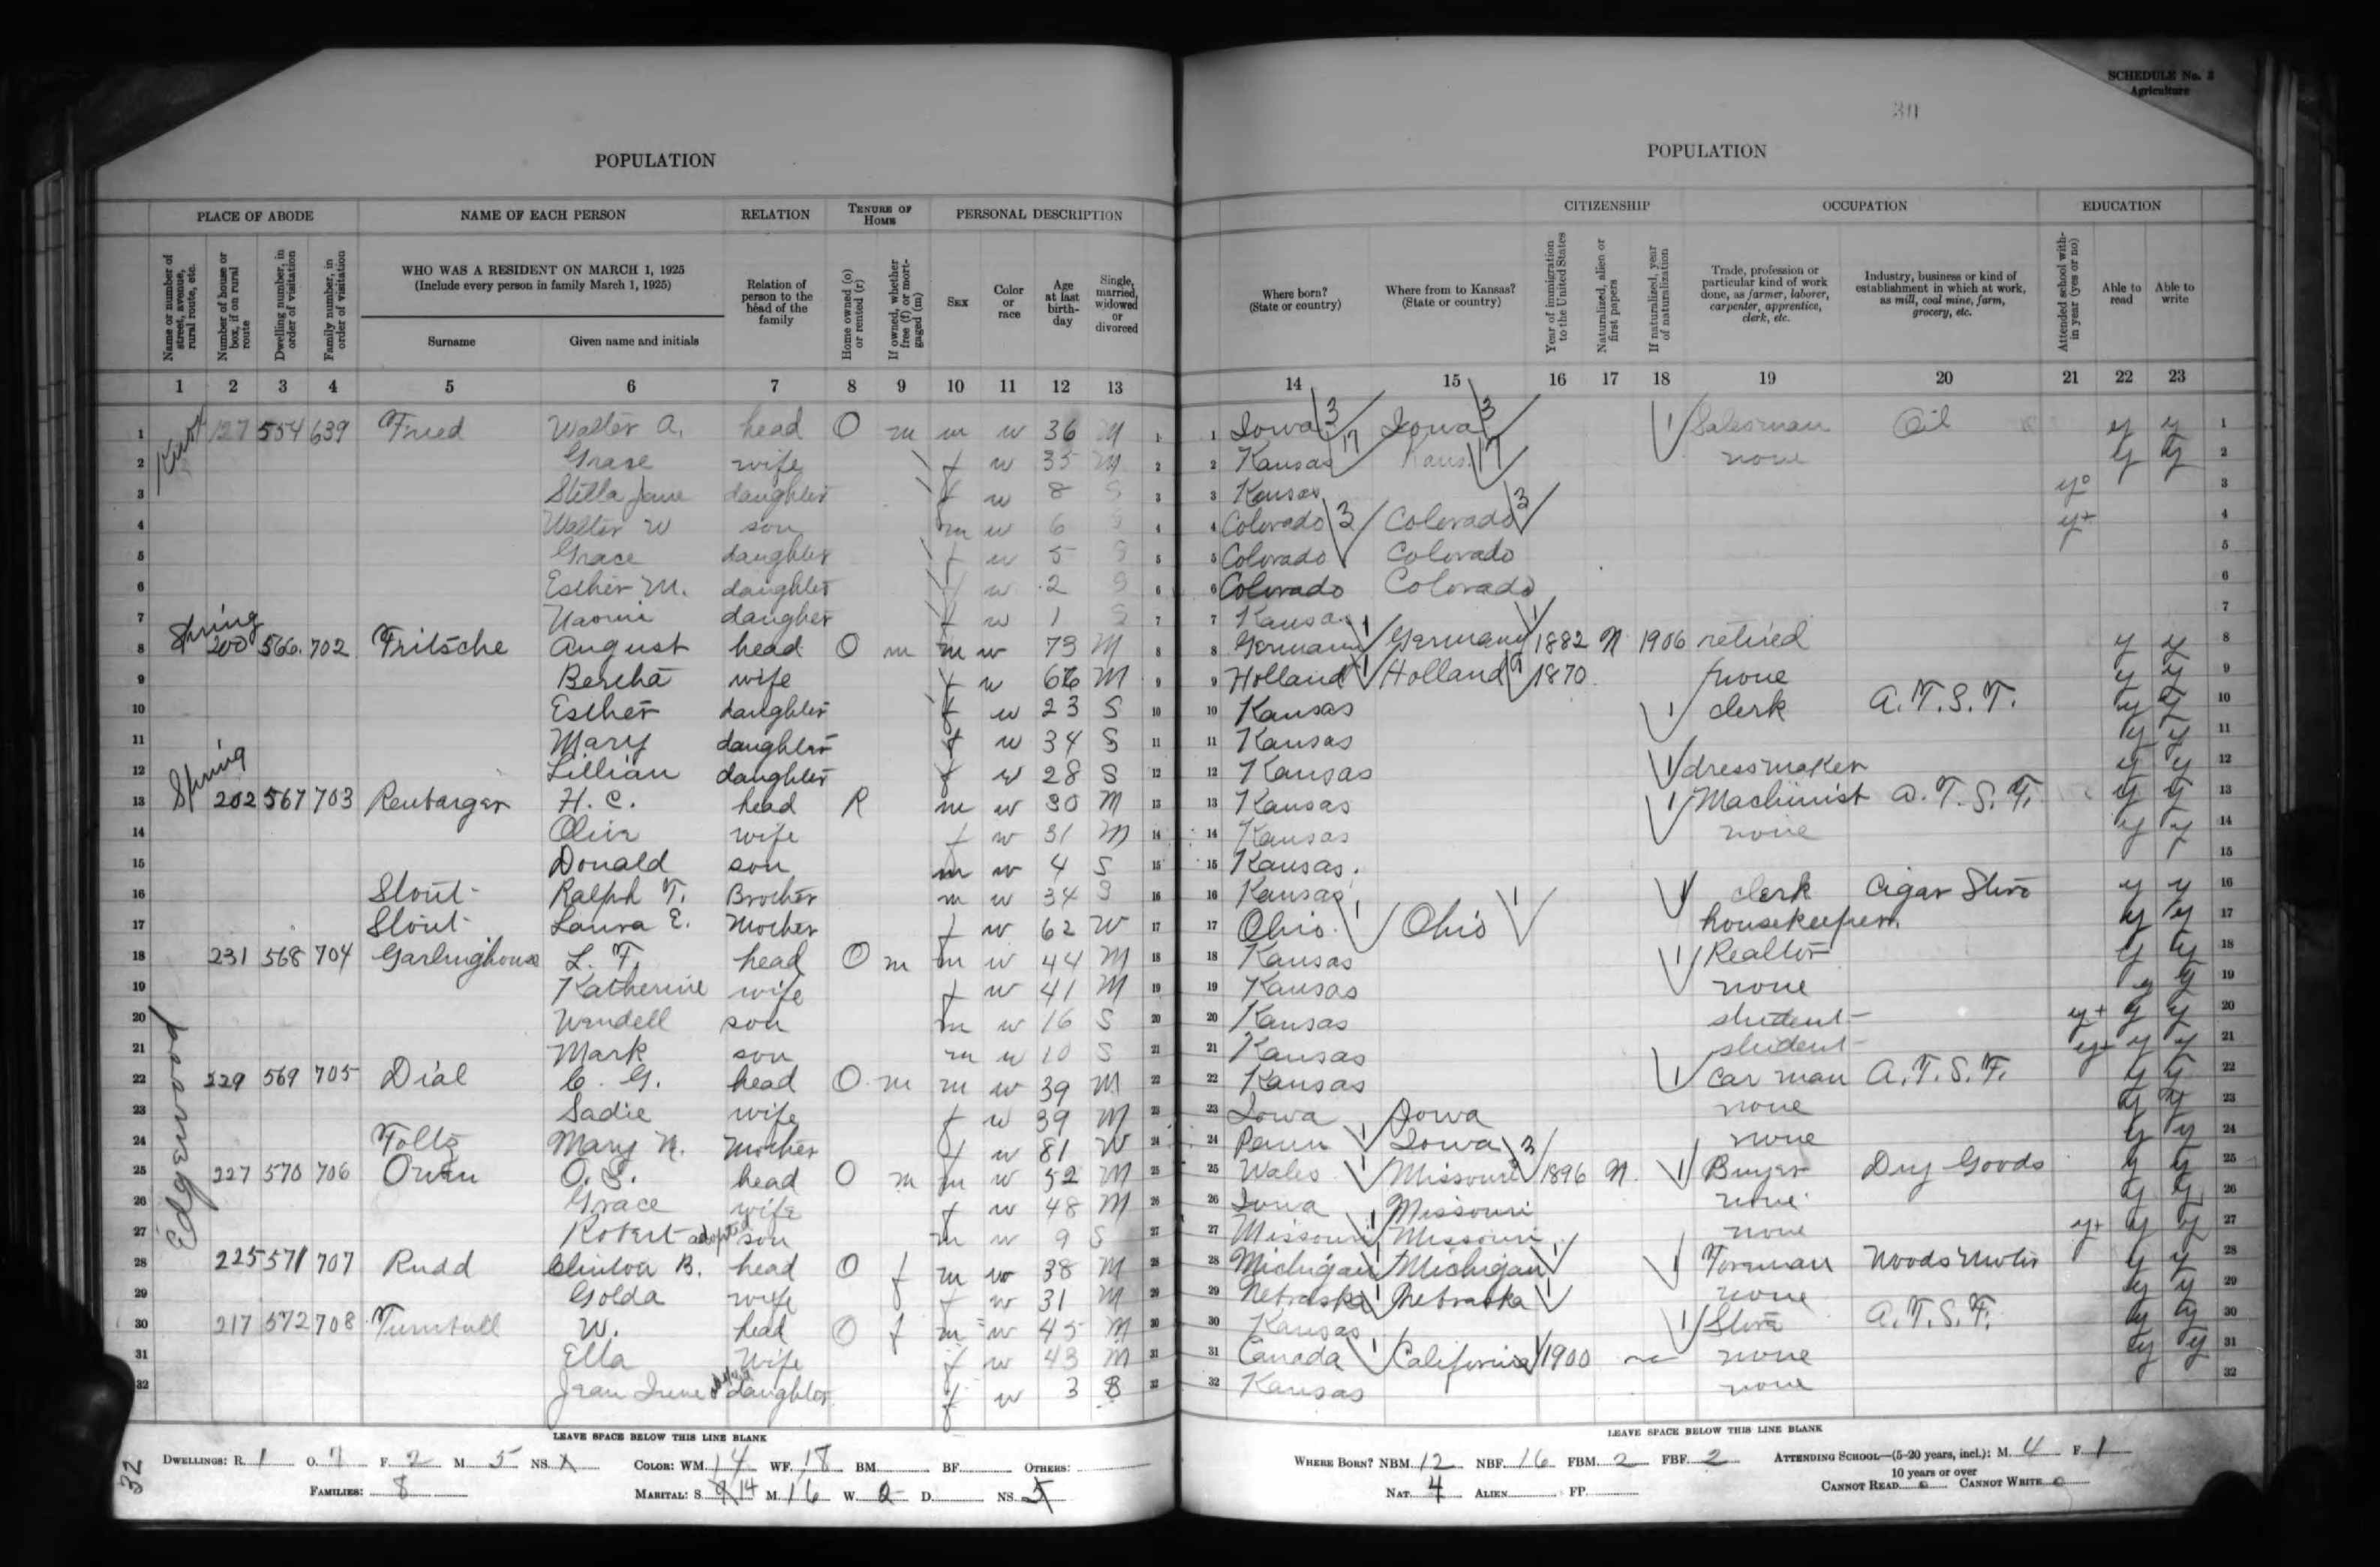 SCHEDULE No. 3
Agriculture
POPULATION
POPULATION
PLACE OF ABODE NAME OF EACH PERSON RELATION TENURE OF HOME PERSONAL DESCRIPTION CITIZENSHIP OCCUPATION EDUCATION
Name or number of street, avenue, rural route, etc.
Number of house or box, if on rural route
Dwelling number, in order of visitation
Family number, in order of visitation
WHO WAS A RESIDENT ON MARCH 1, 1925
(Include every person in family March 1, 1925)
Surname Given name and initials
Relation of person to the head of the family
Home owned (o) or rented (r)
If owned, whether free (f) or mortgaged (m)
SEX
Color or race
Age at last birthday
Single, married, widowed or divorced
Where born? (State or country)
Where from to Kansas? (State or country)
Year of immigration to the United States
Naturalized, alien or first papers
If naturalized, year of naturalization
Trade, profession or particular kind of work done, as farmer, laborer, carpenter, apprentice, clerk, etc.
Industry, business or kind of establishment in which at work, as mill, coal mine, farm, grocery, etc.
Attended school within year (yes or no)
Able to read
Able to write
1 2 3 4 5 6 7 8 9 10 11 12 13 14 15 16 17 18 19 20 21 22 23
1 127 554 639 Fried Walter A. head O m m w 36 M 1 1 Iowa 3 Iowa 3 1 Salesman Oil y y 1
2 Grase wife f w 35 M 2 2 Kansas 17 Kans 17 none y y 2
3 Stella Jane daughter f w 8 S 3 3 Kansas yo 3
4 Walter W son m w 6 S 4 4 Colorado 3 Colorado 3 y+ 4
5 Grace daughter f w 5 S 5 5 Colorado Colorado 5
6 Esther M. daughter f w 2 S 6 6 Colorado Colorado 6
7 Naomi daugher f w 1 S 7 7 Kansas 7
8 Spring 200 566 702 Fritsche August head O m m w 73 M 8 8 Germany 1 Germany 1 1882 N 1906 retired y y 8
9 Bertha wife f w 66 M 9 9 Holland 1 Holland 1870 none y y 9
10 Esther daughter f w 23 S 10 10 Kansas 1 clerk A.T.S.F. y y 10
11 Mary daughter f w 34 S 11 11 Kansas y y 11
12 Lillian daughter f w 28 S 12 12 Kansas 1 dressmaker y y 12
13 Spring 202 567 703 Renbarger H. C. head R m w 30 M 13 13 Kansas 1 Machinist A.T.S.F. y y 13
14 Olive wife f w 31 M 14 14 Kansas none y y 14
15 Donald son m w 4 S 15 15 Kansas 15
16 Stout Ralph T. Brother m w 34 S 16 16 Kansas 1 clerk Cigar Store y y 16
17 Stout Laura E. Mother f w 62 W 17 17 Ohio 1 Ohio 1 housekeeper y y 17
18 231 568 704 Garlinghouse L. F. head O m m w 44 M 18 18 Kansas 1 Realtor y y 18
19 Katherine wife f w 41 M 19 19 Kansas none y y 19
20 Wendell son m w 16 S 20 20 Kansas student y+ y y 20
21 Mark son m w 10 S 21 21 Kansas student y+ y y 21
22 Edgewood 229 569 705 Dial C. G. head O m m w 39 M 22 22 Kansas 1 car man A.T.S.F. y y 22
23 Sadie wife f w 39 M 23 23 Iowa Iowa none y y 23
24 Foltz Mary N. Mother f w 81 W 24 24 Penn 1 Iowa 3 none y y 24
25 227 570 706 Owen O. S. head O m m w 52 M 25 25 Wales 1 Missouri 1896 N. 1 Buyer Dry Goods y y 25
26 Grace wife f w 48 M 26 26 Iowa Missouri none y y 26
27 Robert adopted son m w 9 S 27 27 Missouri 1 Missouri none y+ y y 27
28 225 571 707 Rudd Clinton B. head O f m w 38 M 28 28 Michigan 1 Michigan 1 1 Forman Woods Motor y y 28
29 Golda wife f w 31 M 29 29 Nebraska 1 Nebraska 1 none y y 29
30 217 572 708 Turnbull W. head O f m w 45 M 30 30 Kansas 1 Store A.T.S.F. y y 30
31 Ella Wife f w 43 M 31 31 Canada 1 California 1900 none y y 31
32 Jean Irene daughter f w 3 S 32 32 Kansas none 32
LEAVE SPACE BELOW THIS LINE BLANK
LEAVE SPACE BELOW THIS LINE BLANK
32
DWELLINGS: R. 1 O. 7 F. 2 M. 5 NS. COLOR: WM. 14 WF. 18 BM. BF. OTHERS:
FAMILIES: 8 MARITAL: S. 14 M. 16 W. 2 D. NS.
WHERE BORN? NBM. 12 NBF. 16 FBM. 2 FBF. 2 ATTENDING SCHOOL—(5-20 years, incl.): M. 4 F. 1
NAT. 4 ALIEN. FP. 10 years or over CANNOT READ 0 CANNOT WRITE 0